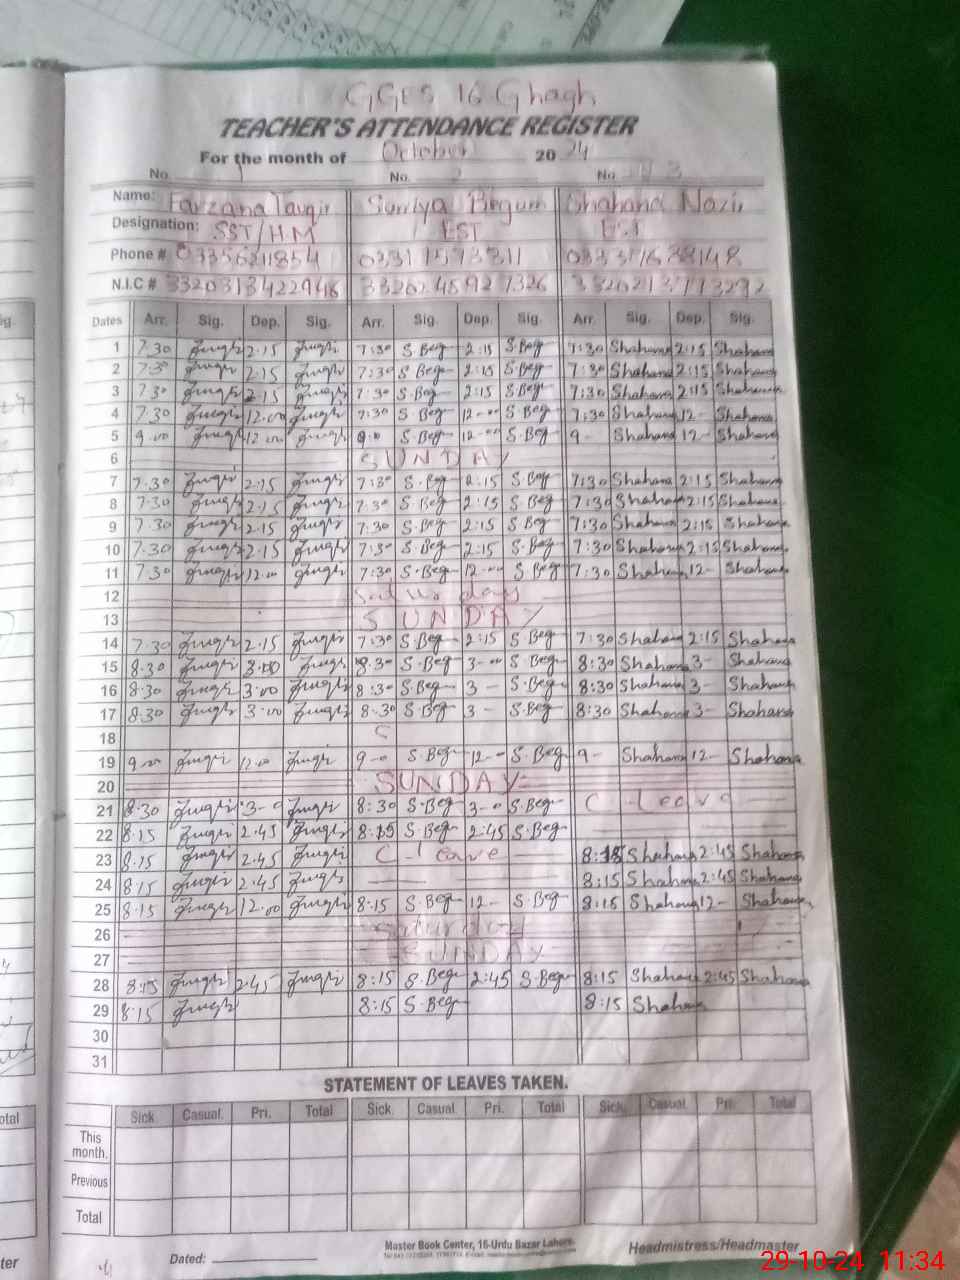 GGES 16 Ghagh
TEACHER'S ATTENDANCE REGISTER
For the month of October 2024
No. 1 No. 2 No. 3
Name: Farzana Tauqir Surriya Begum Shahana Nazir
Designation: SST/H.M EST EST
Phone # 03356211854 03311573811
N.I.C # 3320313422946
Dates Arr. Sig. Dep. Sig. Arr. Sig. Dep. Sig. Arr. Sig. Dep. Sig.
1 7.30 2.15 7:30 S.Beg 2:15 S.Beg 7:30 Shahana 2:15 Shahana
2 7.30 2.15 7:30 S.Beg 2:15 S.Beg 7:30 Shahana 2:15 Shahana
3 7.30 2.15 7:30 S.Beg 2:15 S.Beg 7:30 Shahana 2:15 Shahana
4 7.30 12.00 7:30 S.Beg 12-00 S.Beg 7:30 Shahana 12- Shahana
5 9.00 12.00 9-0 S.Beg 12-00 S.Beg 9- Shahana 12- Shahana
6 SUNDAY
7 7.30 2.15 7:30 S.Beg 2:15 S.Beg 7:30 Shahana 2:15 Shahana
8 7.30 2.15 7:30 S.Beg 2:15 S.Beg 7:30 Shahana 2:15 Shahana
9 7.30 2.15 7:30 S.Beg 2:15 S.Beg 7:30 Shahana 2:15 Shahana
10 7.30 2.15 7:30 S.Beg 2:15 S.Beg 7:30 Shahana 2:15 Shahana
11 7.30 12.00 7:30 S.Beg 12-00 S.Beg 7:30 Shahana 12- Shahana
12
13 SUNDAY
14 7.30 2.15 7:30 S.Beg 2:15 S.Beg 7:30 Shahana 2:15 Shahana
15 8.30 3.00 8.30 S.Beg 3-00 S.Beg 8:30 Shahana 3- Shahana
16 8.30 3.00 8:30 S.Beg 3- S.Beg 8:30 Shahana 3- Shahana
17 8.30 3.00 8.30 S.Beg 3- S.Beg 8:30 Shahana 3- Shahana
18 S
19 9.00 12.00 9-0 S.Beg 12-0 S.Beg 9- Shahana 12- Shahana
20 SUNDAY
21 8.30 3-0 8:30 S.Beg 3-0 S.Beg C. Leave
22 8.15 2.45 8:15 S.Beg 2:45 S.Beg
23 8.15 2.45 C-leave 8:15 Shahana 2:45 Shahana
24 8.15 2.45 8:15 Shahana 2:45 Shahana
25 8.15 12.00 8:15 S.Beg 12- S.Beg 8:15 Shahana 12- Shahana
26 Saturday
27 SUNDAY
28 8:15 2.45 8:15 S.Beg 2:45 S.Beg 8:15 Shahana 2:45 Shahana
29 8.15 8:15 S.Beg 8:15 Shahana
30
31
STATEMENT OF LEAVES TAKEN.
Sick Casual. Pri. Total Sick. Casual. Pri. Total Sick. Casual. Pri. Total
This month.
Previous
Total
Dated:
Master Book Center, 16-Urdu Bazar Lahore.
Headmistress/Headmaster
29-10-24 11:34